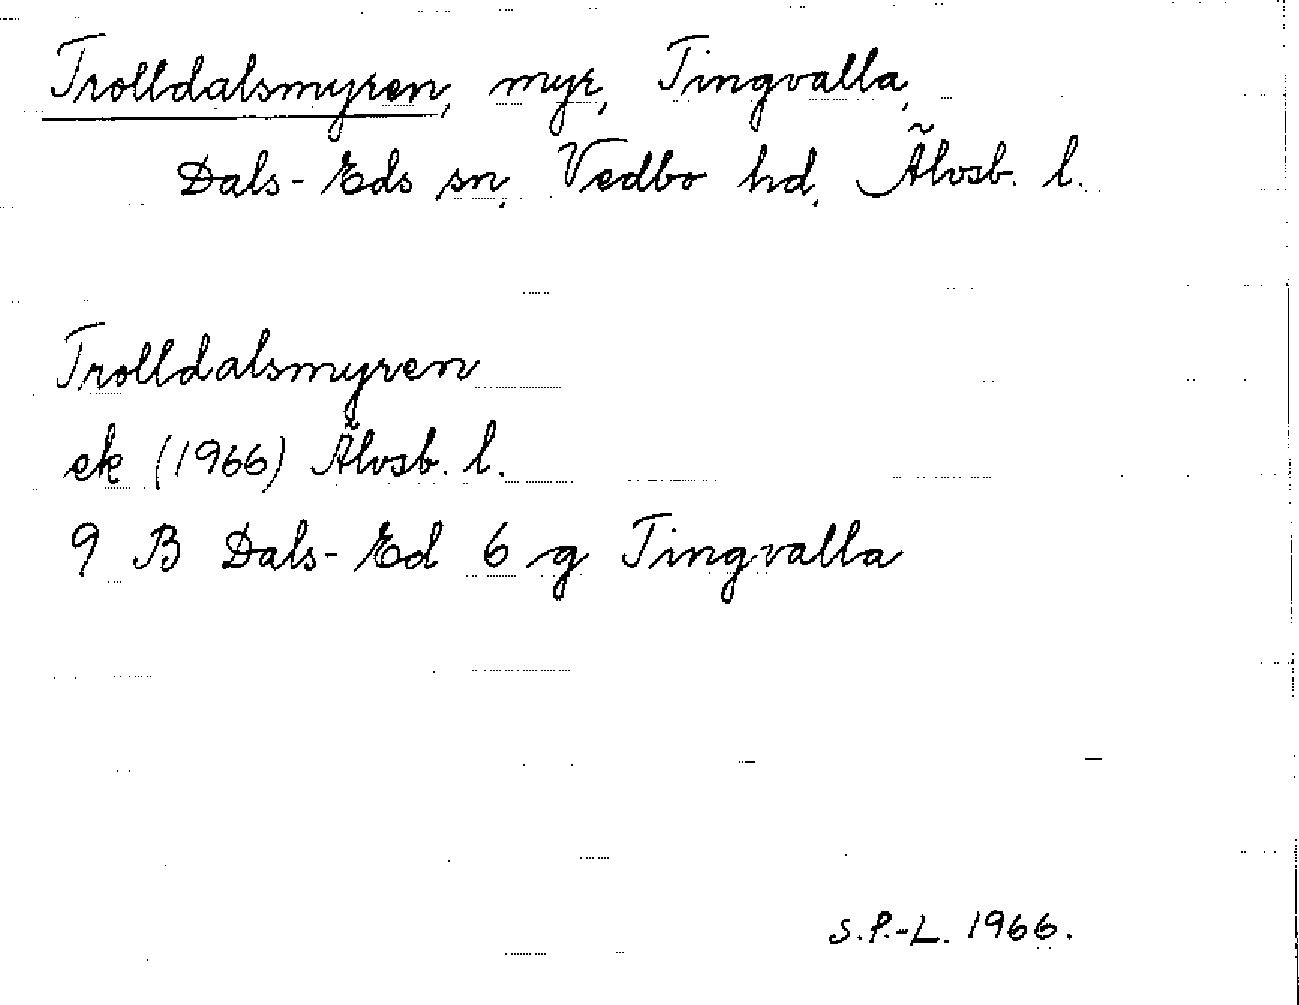 Trolldalsmyren, myr, Tingvalla,
Dals-Eds sn, Vedbo hd, Älvsb. l.
Trolldalsmyren
ek (1966) Älvsb. l.
9 B Dals-Ed 6 g Tingvalla
S.P.-L. 1966.